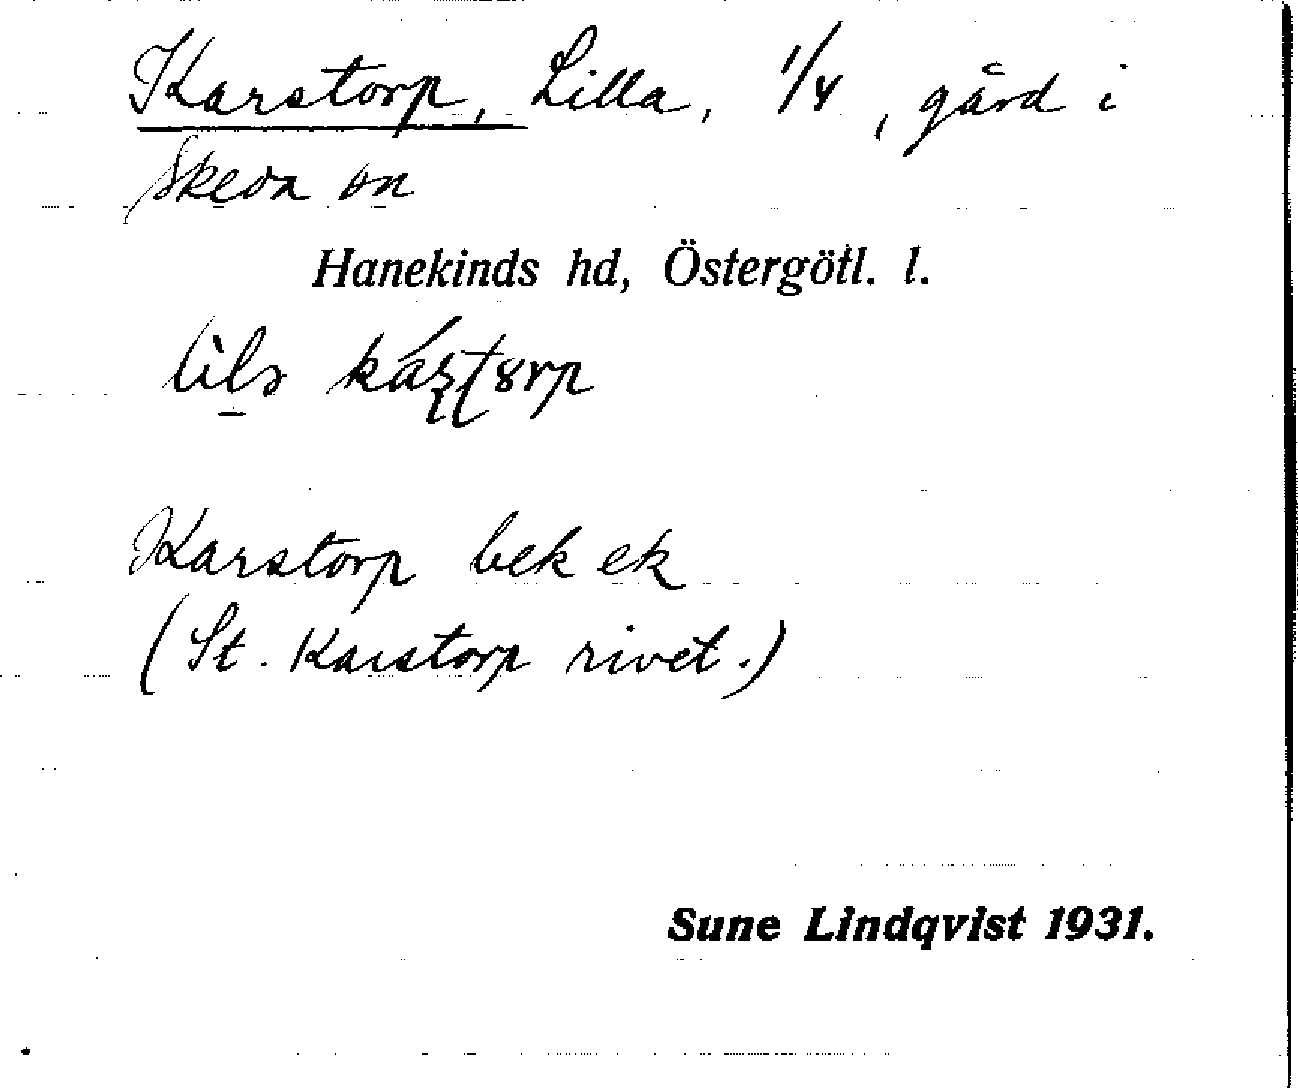 Karstorp, Lilla, 1/4, gård i
Skeda sn
Hanekinds hd, Östergötl. l.
Karstorp bek ek
(St. Karstorp rivet.)
Sune Lindqvist 1931.